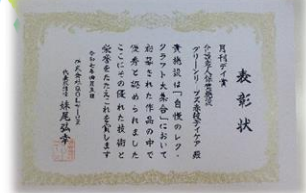 表彰状
月刊デイ賞
グリーンリーブズ赤枝デイケア 殿
貴施設は「自慢のレク・
クラフト大集合」において
応募された作品の中で
優秀と認められました
ここにその優れた技術と
栄誉をたたえこれを賞します
代表取締役 妹尾弘幸